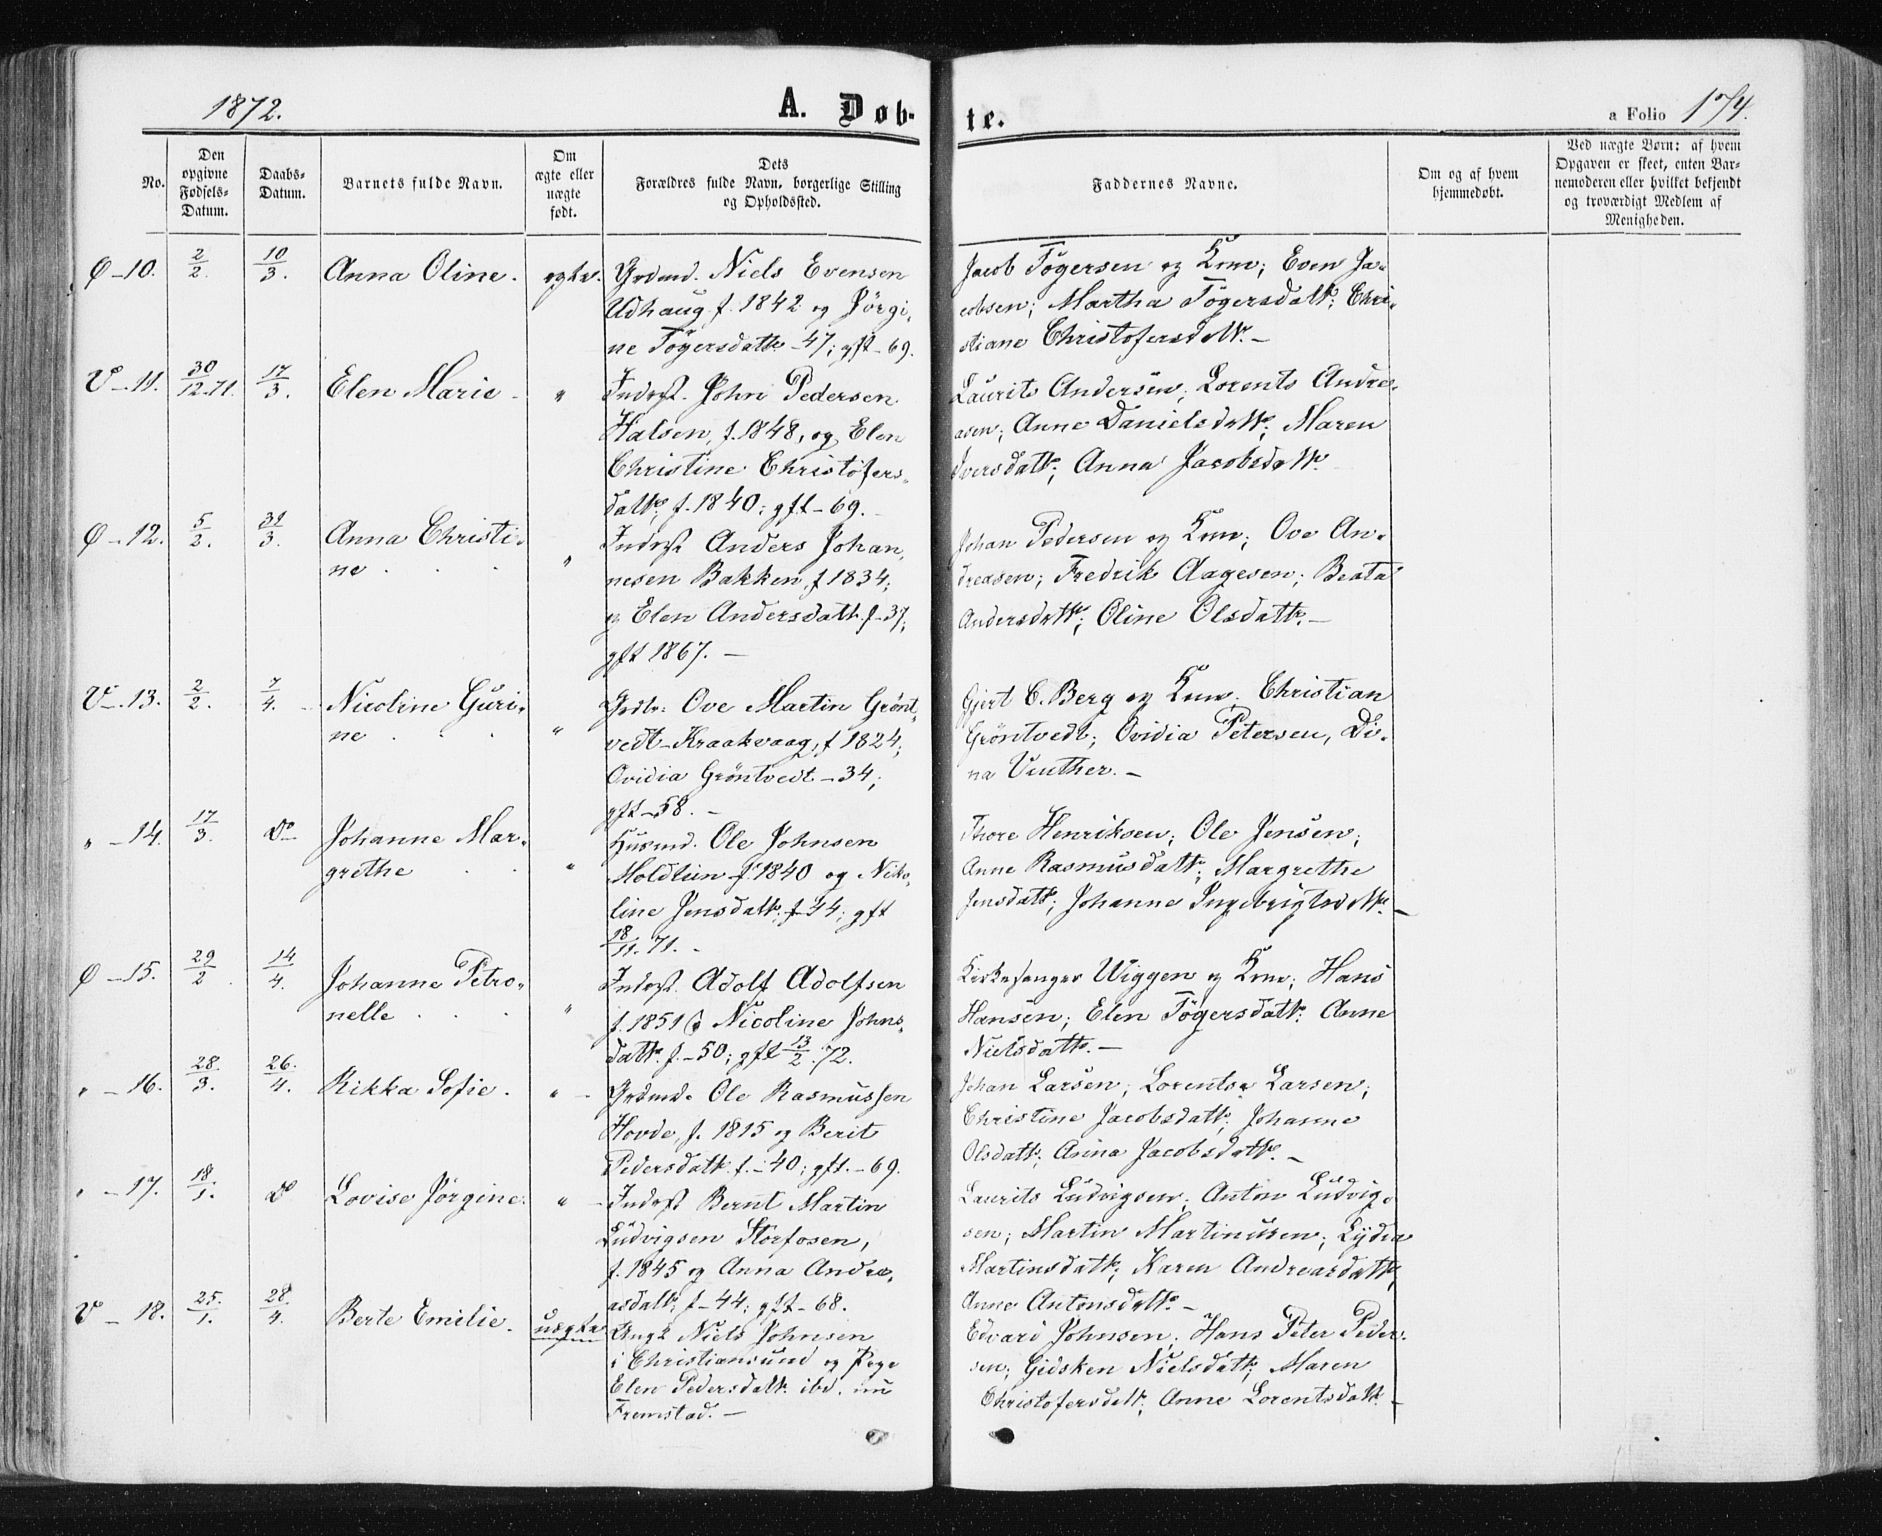 1872.
A. Døb-
te.
a Folio 174.
No.
Den opgivne Fødsels-Datum.
Daabs-Datum.
Barnets fulde Navn.
Om ægte eller uægte født.
Dets Forældres fulde Navn, borgerlige Stilling og Opholdsted.
Faddernes Navne.
Om og af hvem hjemmedøbt.
Ved uægte Børn: af hvem Opgaven er skeet, enten Barnemoderen eller hvilket bekjendt og troværdigt Medlem af Menigheden.
Ø - 10. 2/2. 10/3. Anna Oline. egte. Grdmd. Niels Evensen
Udhaug f. 1842 og Jörgi-
ne Tögersdattr - 47; gft - 69.
Jacob Tögersen og Kone; Even Ja-
cobsen; Martha Tögersdatt; Chri-
stiane Christofersdattr. -
V - 11. 30/12-71. 17/3. Elen Marie - " Inderst. John Pedersen
Halsen, f. 1848, og Elen
Christine Christofers-
datt, f. 1840; gft - 69.
Laurits Andersen; Lorents Andre-
asen; Anne Danielsdatt; Maren
Iversdatt; Anna Jacobsdatt.
Ø - 12. 5/2. 31/3. Anna Christi-
ne . . . " Inderst Anders Johan-
nesen Bakken, f 1834;
og Elen Andersdatt. f - 37;
gft 1867. -
Johan Pedersen og Kone; Ove An-
dreasen; Fredrik Aagesen; Beata
Andersdatt; Oline Olsdatt. -
V - 13. 2/2. 7/4. Nicoline Guri-
ne . . . " Grdbr: Ove Martin Grønt-
vedt - Kraakvaag, f 1824;
Ovidia Gröntvedt - 34;
gft - 58. -
Gjert C. Berg og Kone; Christian
Gröntvedt; Ovidia Petersen, Di-
na Vinther. -
" - 14. 17/3. Do Johanne Mar-
grethe . . " Husmd. Ole Johnsen
Moldtun f. 1840 og Niko-
line Jensdatt. f 44; gft
18/11. 71. -
Thore Henriksen; Ole Jensen;
Anne Rasmusdatt; Margrethe
Jensdatt; Johanne Ingebrigtsdatt. -
Ø - 15. 29/2. 14/4. Johanne Petro-
nelle . . . " Inderst. Adolf Adolfsen
f. 1851 & Nicoline Johns-
datt. f. - 50; gft 13/2. 72.
Kirkesanger Wiggen og Kone; Hans
Hansen; Elen Tögersdatt. Anne
Nielsdatt. -
" - 16. 28/3. 26/4. Rikka Sofie. " - Grdmd. Ole Rasmussen
Hovde, f. 1815 og Berit
Pedersdatt. f. - 40; gft. - 69.
Johan Larsen; Lorents Larsen;
Christine Jacobsdatt; Johanne
Olsdatt; Anna Jacobsdatt. -
" - 17. 18/1. Do Lovise Jørgine. " - Inderst Bernt Martin
Ludvigsen Storfosen,
f. 1845 og Anna Andre-
asdatt; f - 44; gft - 68.
Laurits Ludvigsen; Anton Ludvig-
sen; Martin Martinusen; Lydia
Martinsdatt; Karen Andreasdatt;
Anne Antonsdatt. -
V - 18. 25/1. 28/4. Berte Emilie. uægte Ungk Niels Johnsen
i Christiansund og Pige
Elen Pedersdatt. ibd. nu
Fremstad. -
Edvard Johnsen; Hans Peter Peder-
sen; Gidsken Nielsdatt; Maren
Christofersdatt; Anne Lorentsdatt -